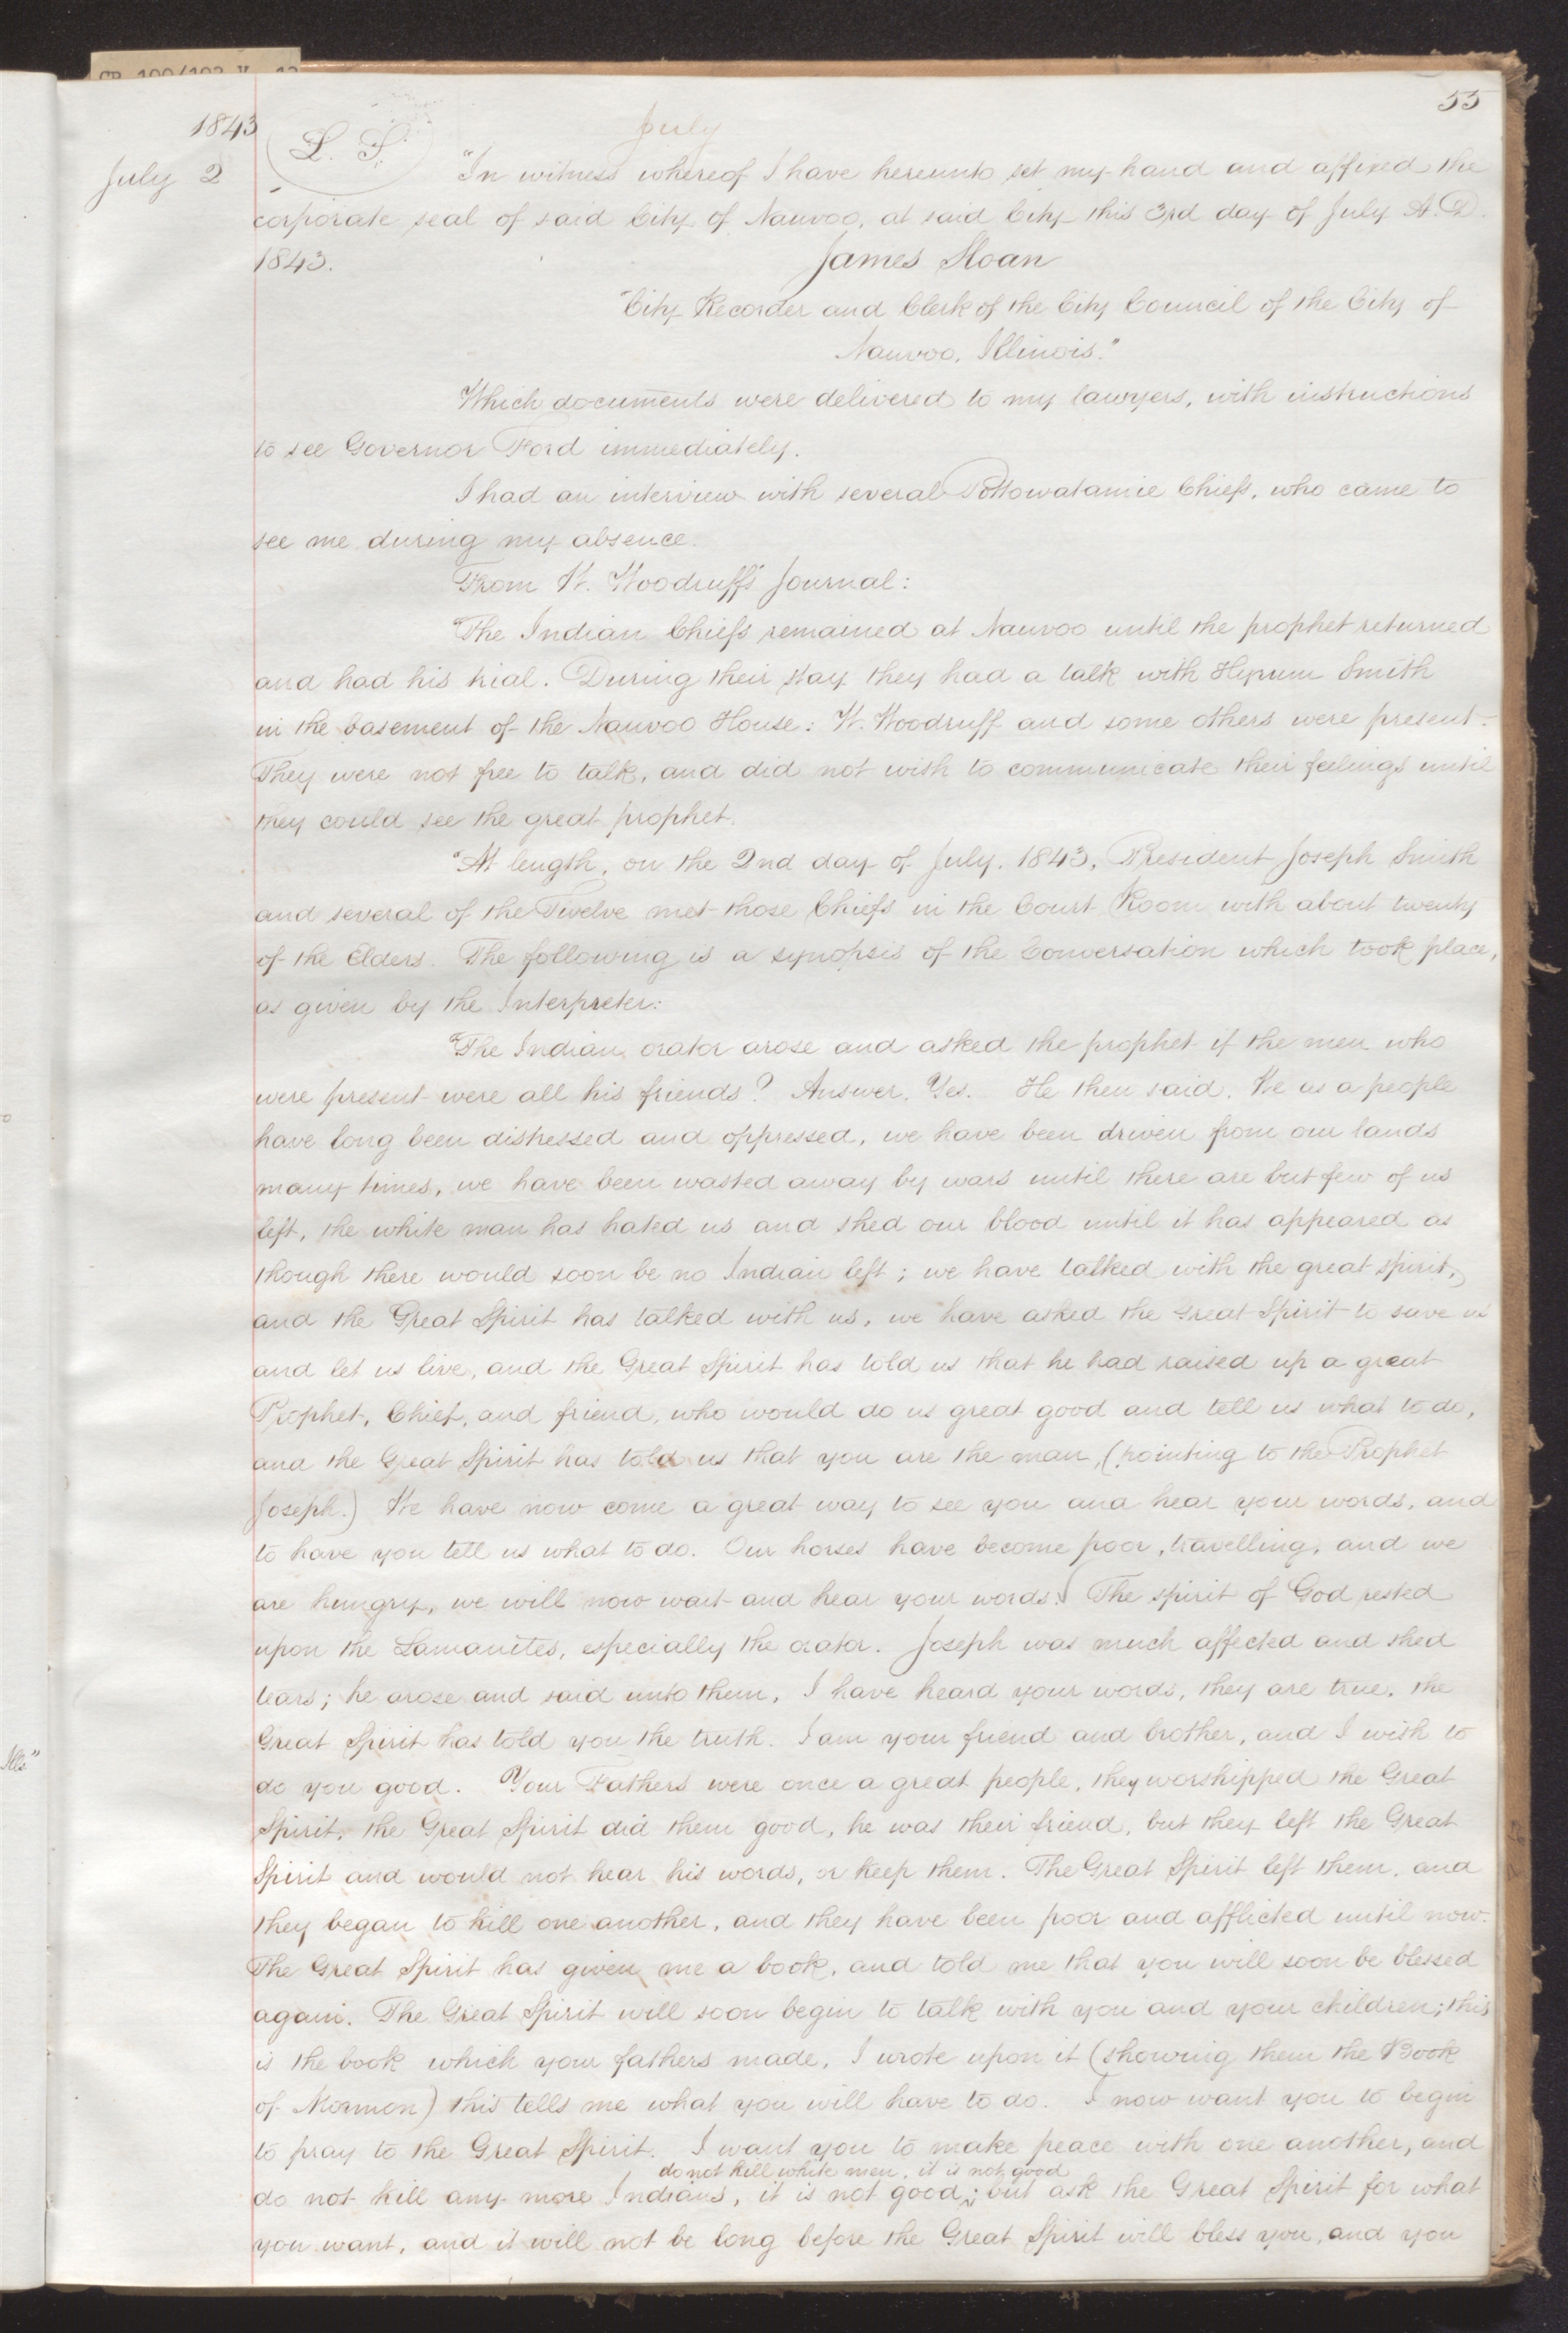 55
1843
July
July 2
L. S.
"In witness whereof I have hereunto set my hand and affixed the
corporate seal of said City of Nauvoo, at said City this 3rd day of July A.D.
1843.
James Sloan
"City Recorder and Clerk of the City Council of the City of
Nauvoo, Illinois."
Which documents were delivered to my lawyers, with instructions
to see Governor Ford immediately.
I had an interview with several Pottowatamie Chiefs, who came to
see me during my absence.
From W. Woodruff's Journal:
"The Indian Chiefs remained at Nauvoo until the prophet returned
and had his trial. During their stay they had a talk with Hyrum Smith
in the basement of the Nauvoo House: W. Woodruff and some others were present.
They were not free to talk, and did not wish to communicate their feelings until
they could see the great prophet.
"At length, on the 2nd day of July, 1843, President Joseph Smith
and several of the Twelve met those Chiefs in the Court Room with about twenty
of the Elders. The following is a synopsis of the Conversation which took place,
as given by the Interpreter:
"The Indian orator arose and asked the prophet if the men who
were present were all his friends? Answer, Yes. He then said, We as a people
have long been distressed and oppressed, we have been driven from our lands
many times, we have been wasted away by wars until there are but few of us
left, the white man has hated us and shed our blood until it has appeared as
though there would soon be no Indian left; we have talked with the great spirit,
and the Great Spirit has talked with us, we have asked the Great Spirit to save us
and let us live, and the Great Spirit has told us that he had raised up a great
Prophet, Chief, and friend, who would do us great good and tell us what to do,
and the Great Spirit has told us that you are the man, (pointing to the Prophet
Joseph.) We have now come a great way to see you and hear your words, and
to have you tell us what to do. Our horses have become poor, travelling, and we
are hungry, we will now wait and hear your words. The spirit of God rested
upon the Lamanites, especially the orator. Joseph was much affected and shed
tears; he arose and said unto them, I have heard your words, they are true, the
Great Spirit has told you the truth. I am your friend and brother, and I wish to
do you good. Your Fathers were once a great people, they worshipped the Great
Spirit, the Great Spirit did them good, he was their friend, but they left the Great
Spirit and would not hear his words, or keep them. The Great Spirit left them, and
they began to kill one another, and they have been poor and afflicted until now.
The Great Spirit has given me a book, and told me that you will soon be blessed
again. The Great Spirit will soon begin to talk with you and your children; this
is the book which your fathers made, I wrote upon it (showing them the Book
of Mormon) this tells me what you will have to do. I now want you to begin
to pray to the Great Spirit. I want you to make peace with one another, and
do not kill white men, it is not good
do not kill any more Indians, it is not good; but ask the Great Spirit for what
you want, and it will not be long before the Great Spirit will bless you, and you